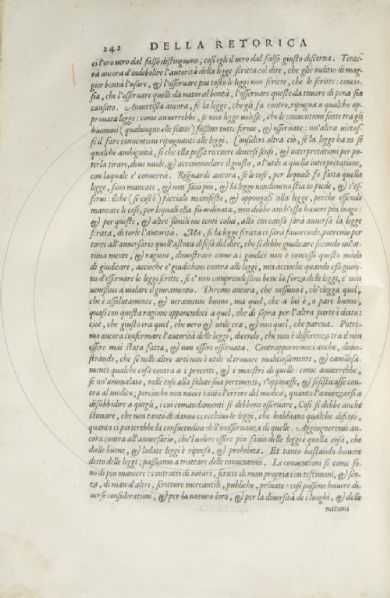 242 DELLA RETORICA
ci l'oro vero dal falso distinguono, così egli il vero dal falso giusto discerna. Tente
rà ancora d'indebolire l'autorità della legge scritta col dire, che gli inditio di mag
gior bontà l'usare, & l'osservare più tosto le leggi non scritte, che le scritte: concio
sia, che l'osservare quelle da natural bontà, l'osservare queste da timore di pena sia
causato. Avvertisca ancora, se la legge, che gli fa contro, ripugna a qualche ap
provata legge: come avverrebbe, se una legge volesse, che le conventioni fatte tra gli
huomini (qualunque elle siano) fussino tutte ferme, & osservate: un'altra vietas
se il fare conventioni ripugnanti alle leggi. Consideri oltra ciò, se la legge ha in sè
qualche ambiguità, sì che ella possa ricevere diversi sensi, & interpretationi, per po
terla tirare, dove vuole, & accommodare il giusto, o l'utile a quella interpretatione,
con laquale e' converrà. Risguardi ancora, se le cose, per lequali fu fatta quella
legge, sono mancate, & non sono più, & la legge nondimeno stia in piede, & s'os
servi: ilche (se così è) faccialo manifesto, & oppongasi alla legge, perche essendo
mancate le cose, per lequali ella fu ordinata, non debbe anch'essa havere più luogo:
& per queste, & altre simili vie tenti colui, alla cui causa sarà avversa la legge
scritta, di torle l'autorità. Ma, se la legge scritta ci sarà favorevole, potremo per
torre all'avversario quest'astuta difesa del dire, che si debbe giudicare secondo un'ot
tima mente, & ragione, dimostrare come a i giudici non è concesso questo modo
di giudicare, accioche e' giudichino contra alle leggi, ma accioche quando essi giura
no d'osservare le leggi scritte, se e' non comprendessino bene la forza delle leggi, e' non
venissino a violare il giuramento. Diremo ancora, che nessuno è, ch'elegga quel,
che è assolutamente, & veramente buono, ma quel, che a lui è, o pare buono,
quasi con questa ragione opponendoci a quel, che di sopra per l'altra parte è detto:
cioè, che giusto era quel, che vero & utile era, & non quel, che pareva. Potre
mo ancora confermare l'autorità delle leggi, dicendo, che non è differenza tra il non
essere mai stata fatta, & non essere osservata. Contrapporremoci anche, dimo
strando, che se nelle altre arti non è utile ritrovare malitiosamente, & cavillosa
mente qualche cosa contra a i precetti, & i maestri di quelle: come avverrebbe,
se un'ammalato, nelle cose alla salute sua pertinenti, s'opponesse, & sofisticasse con
tra al medico; perciche non nuoce tanto l'errore del medico, quanto l'avvezzarsi a
disobbidire a quegli, i cui comandamenti si debbono osservare. Così si debbe anche
stimare, che non tanto di danno ci rechino le leggi, che habbiano qualche difetto,
quanto ci partorebbe la consuetudine dell'inosservanza di quelle. Aggiugneremo an
cora contra all'avversario, che'l volere essere più savio delle leggi è quella cosa, che
dalle buone, & lodate leggi è ripresa, & prohibita. Et tanto bastando havere
detto delle leggi: passiamo a trattare delle conventioni. Le conventioni si come so
no di più maniere: contratti di notari, scritte di man propria con testimoni, & sen
za, di man d'altri, scritture mercantili, publiche, private: così possono havere di
verse considerationi, & per la natura loro, & per la diversità de i luoghi, & delle
nationi